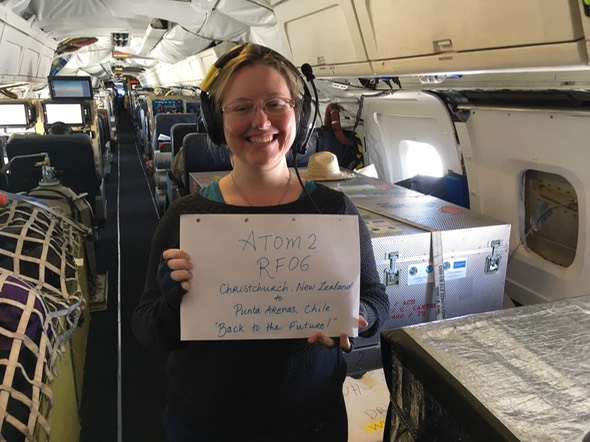 ATOM 2
RF06
CHRISTCHURCH, NEW ZEALAND
to
PUNTA ARENAS, CHILE
"BACK TO THE FUTURE!"